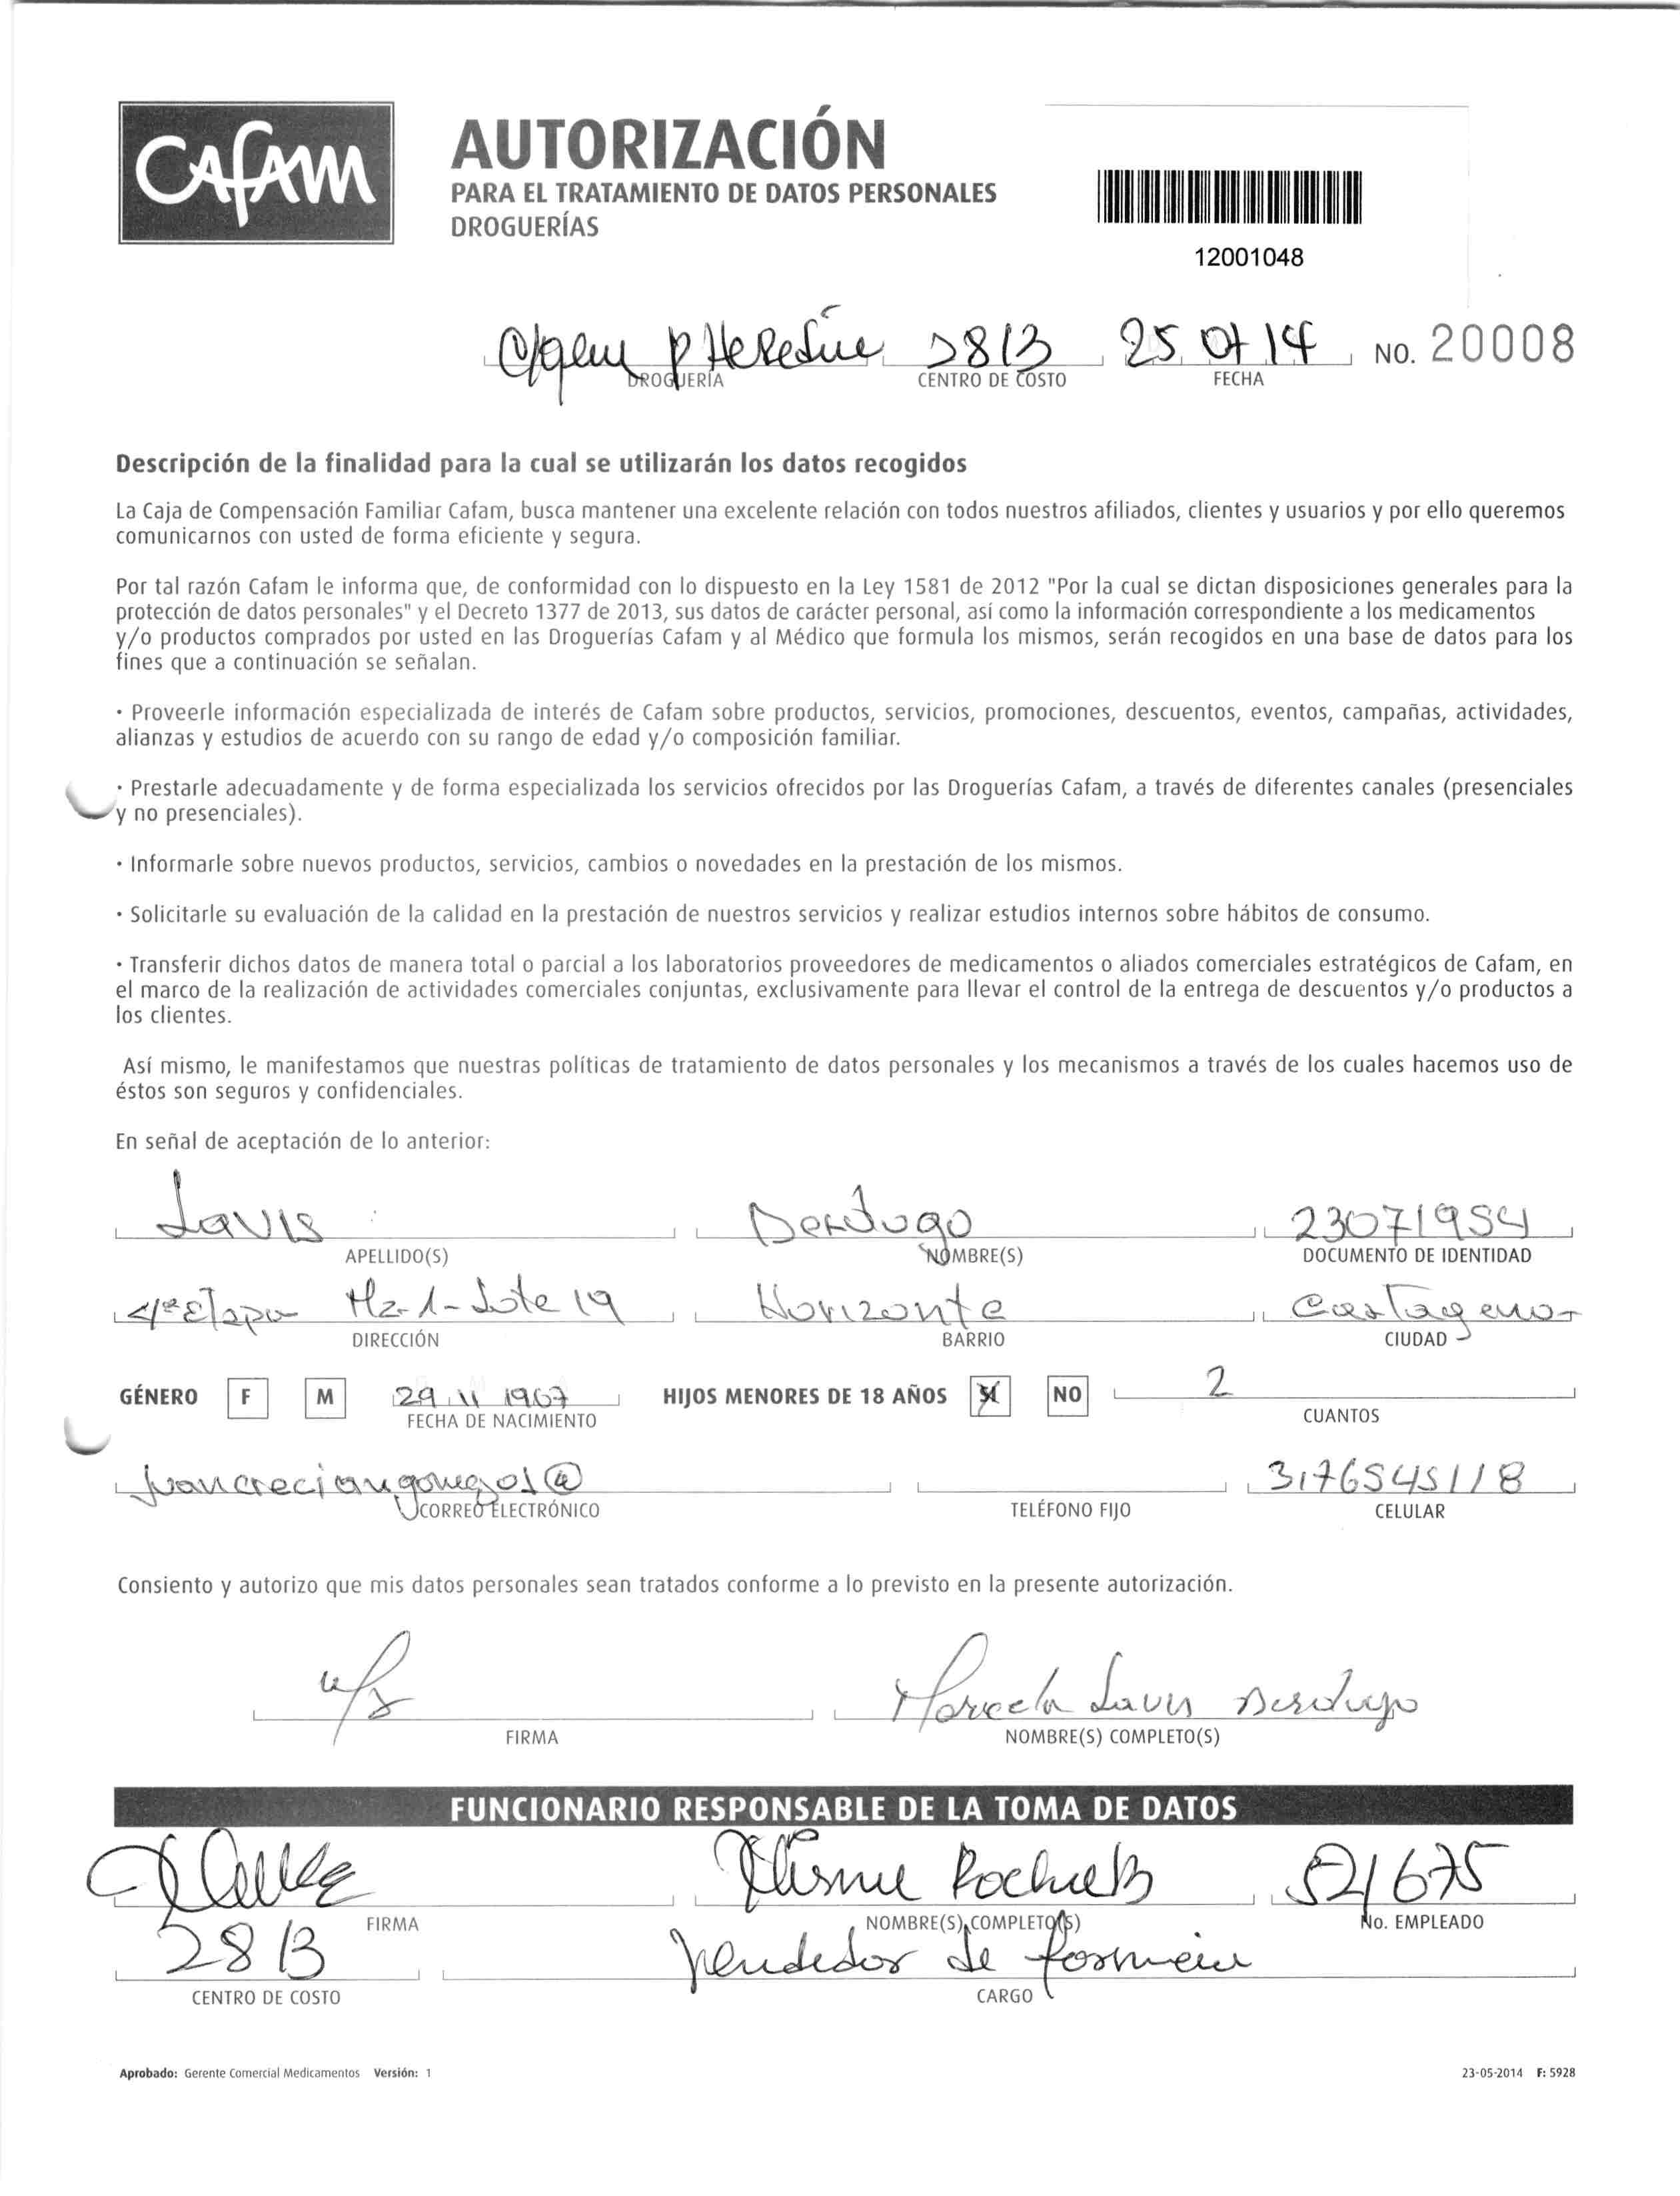 CAFAM
AUTORIZACIÓN
PARA EL TRATAMIENTO DE DATOS PERSONALES
DROGUERÍAS
12001048
2813 25 07 14 NO. 20008
DROGUERÍA CENTRO DE COSTO FECHA
Descripción de la finalidad para la cual se utilizarán los datos recogidos
La Caja de Compensación Familiar Cafam, busca mantener una excelente relación con todos nuestros afiliados, clientes y usuarios y por ello queremos
comunicarnos con usted de forma eficiente y segura.
Por tal razón Cafam le informa que, de conformidad con lo dispuesto en la Ley 1581 de 2012 "Por la cual se dictan disposiciones generales para la
protección de datos personales" y el Decreto 1377 de 2013, sus datos de carácter personal, así como la información correspondiente a los medicamentos
y/o productos comprados por usted en las Droguerías Cafam y al Médico que formula los mismos, serán recogidos en una base de datos para los
fines que a continuación se señalan.
· Proveerle información especializada de interés de Cafam sobre productos, servicios, promociones, descuentos, eventos, campañas, actividades,
alianzas y estudios de acuerdo con su rango de edad y/o composición familiar.
· Prestarle adecuadamente y de forma especializada los servicios ofrecidos por las Droguerías Cafam, a través de diferentes canales (presenciales
y no presenciales).
· Informarle sobre nuevos productos, servicios, cambios o novedades en la prestación de los mismos.
· Solicitarle su evaluación de la calidad en la prestación de nuestros servicios y realizar estudios internos sobre hábitos de consumo.
· Transferir dichos datos de manera total o parcial a los laboratorios proveedores de medicamentos o aliados comerciales estratégicos de Cafam, en
el marco de la realización de actividades comerciales conjuntas, exclusivamente para llevar el control de la entrega de descuentos y/o productos a
los clientes.
Así mismo, le manifestamos que nuestras políticas de tratamiento de datos personales y los mecanismos a través de los cuales hacemos uso de
éstos son seguros y confidenciales.
En señal de aceptación de lo anterior:
Lavis Berdugo 23071954
APELLIDO(S) NOMBRE(S) DOCUMENTO DE IDENTIDAD
4ª Etapa Mz-1-Lote 19 Horizonte Cartagena
DIRECCIÓN BARRIO CIUDAD
GÉNERO F M 29 11 1967 HIJOS MENORES DE 18 AÑOS SI NO 2
FECHA DE NACIMIENTO CUANTOS
3176545118
CORREO ELECTRÓNICO TELÉFONO FIJO CELULAR
Consiento y autorizo que mis datos personales sean tratados conforme a lo previsto en la presente autorización.
Marcela Lavis Berdugo
FIRMA NOMBRE(S) COMPLETO(S)
FUNCIONARIO RESPONSABLE DE LA TOMA DE DATOS
521675
FIRMA NOMBRE(S) COMPLETO(S) No. EMPLEADO
2813 Vendedor de farmacia
CENTRO DE COSTO CARGO
Aprobado: Gerente Comercial Medicamentos Versión: 1 23-05-2014 F: 5928